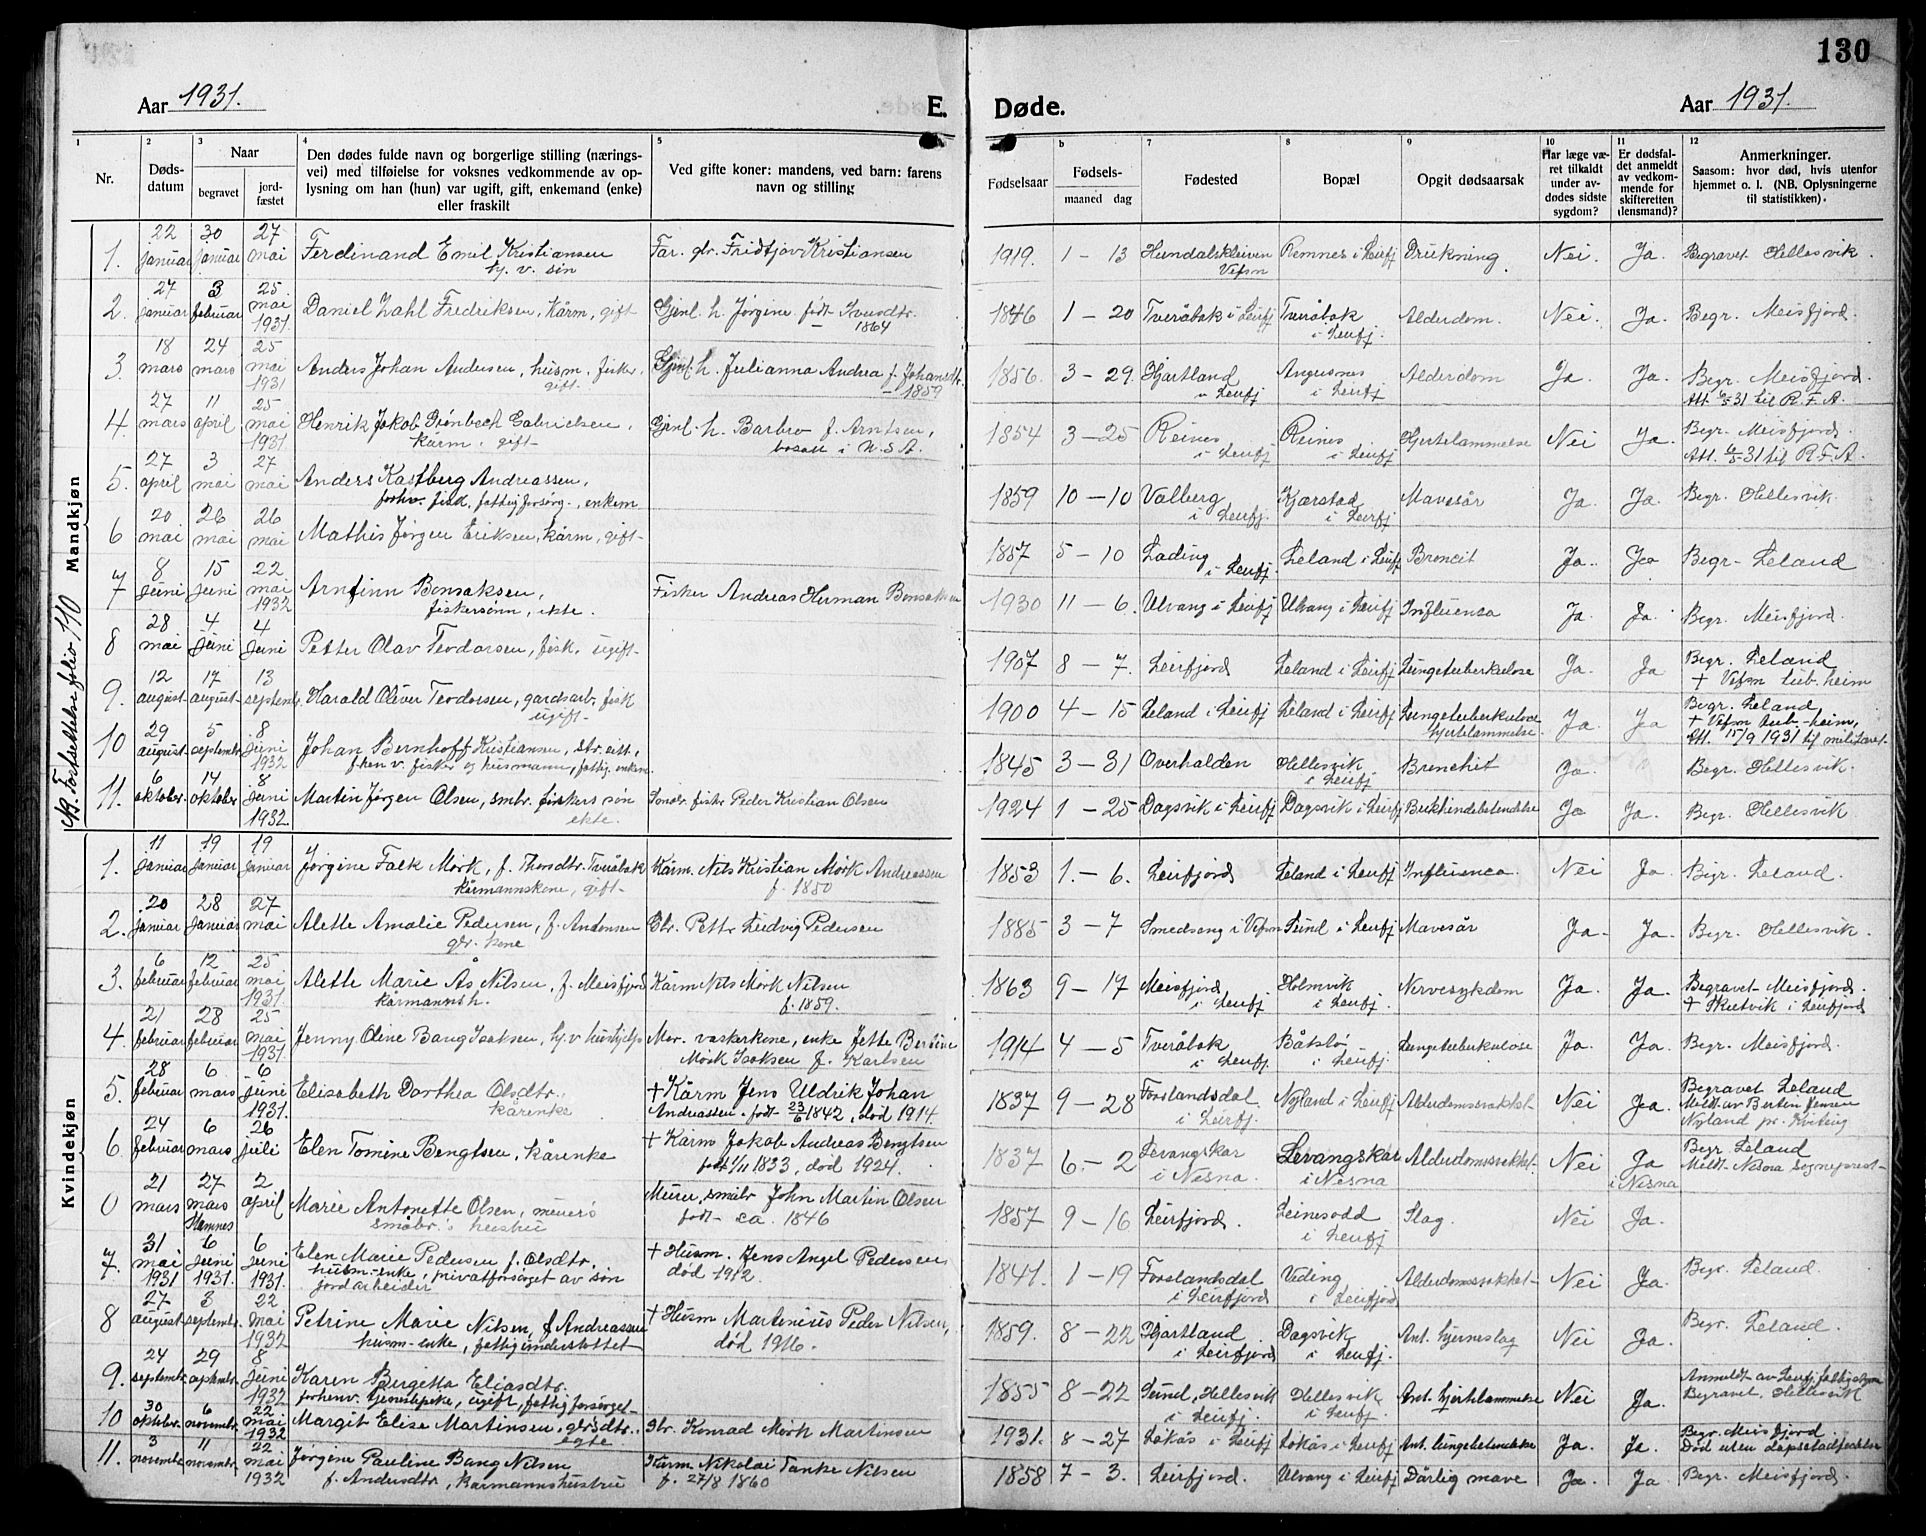 130
Aar 1931.
E.
Døde.
Aar 1931.
1
Nr.
2
Døds-
datum
3
Naar
begravet
jord-
fæstet
4
Den dødes fulde navn og borgerlige stilling (nærings-
vei) med tilføielse for voksnes vedkommende av op-
lysning om han (hun) var ugift, gift, enkemand (enke)
eller fraskilt
5
Ved gifte koner: mandens, ved barn: farens
navn og stilling
Fødselsaar
b
Fødsels-
maaned dag
7
Fødested
8
Bopæl
9
Opgit dødsaarsak
10
Har læge væ-
ret tilkaldt
under av-
dødes sidste
sygdom?
11
Er dødsfal-
det anmeldt
av vedkom-
mende for
skifteretten
(lensmand)?
12
Anmerkninger.
Saasom: hvor død, hvis utenfor
hjemmet o. l. (NB. Oplysningerne
til statistikken).
Mandkjøn
NB. Fortsettelse folio 110
1. 22 januar 30 januar 27 mai Ferdinand Emil Kristiansen Far. gbr. Fridtjov Kristiansen 1919. 1 – 13 Hundalskleiven Remnes i Leirfj Drukning Nei. Ja. Begravet Hellesvik.
hj. v. søn Vefsn
2. 27 januar 3 februar 25 mai 1931 Daniel Zahl Fredriksen, kårm, gift Gjenl. h. Jørgine født Iversdtr. 1846 1 – 20 Tveråbak i Leirfj Tveråbak Alderdom. Nei. Ja. Begr. Meisfjord.
1864 i Leirfj.
3. 18 mars 24 mars 25 mai 1931 Anders Johan Andersen, husm. fisker, Gjenl. h. Julianna Andrea f. Johansdtr. 1856. 3 – 29. Hjartland Angersnes Alderdom Ja. Ja. Begr. Meisfjord.
gift. – 1859 i Leirfj i Leirfj Att. 6/5 31 til R.F.A.
4. 27 mars 11 april 25 mai 1931 Henrik Jakob Grønbech Gabrielsen, Gjenl. h. Barbro f. Arntsen, 1854 3 – 25 Reines Reines Hjertelammelse Nei Ja. Begr. Meisfjord.
kårm. gift bosatt i U.S.A. i Leirfj i Leirfj. Att. 6/5 31 til R.F.A.
5. 27 april 3 mai 27 mai Anders Kastberg Andreassen, 1859 10 – 10 Valberg Kjærstad Mavesår Ja Ja. Begr. Hellesvik.
forhv. fisk. fattigforsørg., enkem i Leirfj. i Leirfj
6 20 mai 26 mai 26 mai Mathis Jørgen Eriksen, kårm, gift 1857 5 – 10 Lading Leland i Leirfj Broncit Ja. Ja Begr. Leland
i Leirfj.
7 8 juni 15 juni 22 mai 1932 Arnfinn Bonsaksen, Fisker Andreas Herman Bonsaksen 1930 11 – 6. Ulvang i Leirfj Ulvang i Leirfj Influensa Ja. Ja. Begr. Meisfjord.
fiskersønn, ekte.
8 28 mai 4 juni 4 juni Petter Olav Teodorsen, fisk. ugift 1907 8 – 7. Leirfjord Leland i Leirfj Lungetuberkulose Ja. Ja Begr. Leland
+ Vefsn tub. heim
9. 12 august 17 august 13 septemb. Harald Oliver Teodorsen, gardsarb. fisk 1900 4 – 15 Leland i Leirfj Leland i Leirfj Lungetuberkulose Ja. Ja Begr. Leland
ugift hjertelammelse + Vefsn tub-heim,
Att. 15/9 1931 til militæret.
10 29 august 5 septembr. 8 juni 1932 Johan Bernhoff Kristiansen, 1845 3 – 31 Overhalden Hellesvik Bronchit Ja. Begr. Hellesvik.
fhen v. fisker og husmann, fattig, enkem. i Leirfj
11. 6 oktober 14 oktober 8 juni 1932 Martin Jørgen Olsen, smbr. fiskers søn Peder Kristian Olsen 1924 1 – 25 Dagsvik i Leirfj Dagsvik i Leirfj Bukhindebetendelse Ja Ja. Begr. Hellesvik
ekte.
Kvindekjøn
1. 11 januar 19 januar 19 januar Jørgine Falk Mørk, f. Tveråbak Kårm. Nils Kristian Mørk Andreassen 1853 1. – 6. Leirfjord Leland i Leirfj Influensa. Nei Ja. Begr. Leland.
kårmannskone, gift f. 1850
2. 20 januar 28 januar 27 mai Alette Amalie Pedersen, f. Andersen Gbr. Petter Ludvig Pedersen 1885 3 – 7 Smedseng i Vefsn Sund i Leirfj Mavesår Ja. Ja. Begr. Hellesvik.
gbr. kone
3. 6 februar 12 februar 25 mai 1931. Alette Marie Ås Nilsen, f. Meisfjord Kårm Nils Mørk Nilsen 1863 9 – 17 Meisfjord Holmvik Nervesykdom Ja. Ja. Begravet Meisfjord.
kårmannsh. f. 1859. i Leirfj i Leirfj. + Skutvik i Leirfjord
4. 21 februar 28 februar 25 mai 1931. Jenny Oline Bang Isaksen, hj. v hushjelp Mor. vaskerkone, enke Jette Bersine 1914 4 – 5 Tveråbak Båtslø Lungetuberkulose Ja. Ja Begr. Meisfjord.
Mørk Isaksen f. Karlsen i Leirfj. i Leirfj.
5. 28 februar 6 mars 6 juni 1931. Elisabeth Dorthea Olsdtr. + Kårm Jens Uldrik Johan 1837 9 – 28 Forslandsdal Nyland i Leirfj Alderdomssvakhet Nei Ja. Begravet Leland
kårenke Andreassen. født 23/6 1842, død 1914. i Leirfj. Meldt av Bertin Jensen
Nyland pr. Kviting
6. 24 februar 6 mars 26 juli Elen Tomine Bengtsen, kårenke + Kårm Jakob Andreas Bengtsen 1837 6 – 2 Levangskar Levangskar Alderdomssvakhet Nei Ja Begr. Leland
født 1/11 1833, død 1924. i Nesna. i Nesna i Nesna Meldt. Nesna sogneprest
0 21 mars 27 mars Hemnes 2 april Marie Antonette Olsen, murer, småbr. John Martin Olsen 1857 9 – 16 Leirfjord. Leinesodd Slag. Nei Ja.
småbr.s hustru født ca. 1846 i Leirfj
7. 31 mai 1931 6 juni 1931. 6 juni 1931. Elen Marie Pedersen f. Olsdtr. + Husm. Jens Angel Pedersen 1841. 1 – 19 Forslandsdal Veding Alderdomssvakhet Nei Ja. Begr. Leland.
husm-enke, privatforsørget av søn død 1912. i Leirfjord i Leirfjord
jordarbeider
8 27 august 3 septembr. 22 mai 1932 Petrine Marie Nilsen, f Andreassen + Husm Martenius Peder Nilsen, 1859. 8 – 22 Hjartland Dagsvik Ant. hjerneslag Nei Ja. Begr. Leland.
husm-enke, fattigunderstøttet død 1916. i Leirfjord i Leirfj.
9. 24 septembr. 29 septembr. 8 juni 1932 Karen Birgitta Eliasdtr. 1855 8 – 22 Sund, Hellesvik Hellesvik Ant. hjertelammelse Nei Ja. Anmeldt av Leirfj. fattigstyre
forhenv. tjenestepike, ugift, fattigforsørget i Leirfj. i Leirfj. Begravet, Hellesvik
10 30 oktober. 6 novembr. 22 mai 1932 Margit Elise Martinsen, gbrsdtr. Gbr. Konrad Mørk Martinsen 1931. 8 – 27 Løkås i Leirfj Løkås i Leirfj Ant. lungebetendelse Ja. Ja. Begr. Meisfjord.
egte. Død uten
11. 3 novembr. 11 novembr. 22 mai 1932 Jørgine Pauline Bang Nilsen Kårm Nikolai Tanke Nilsen 1858 7 – 3. Leirfjord. Ulvang i Leirfj Dårlig mave Ja Ja. Begr. Meisfjord.
f. Andersdtr, kårmannshustru f. 27/8 1860